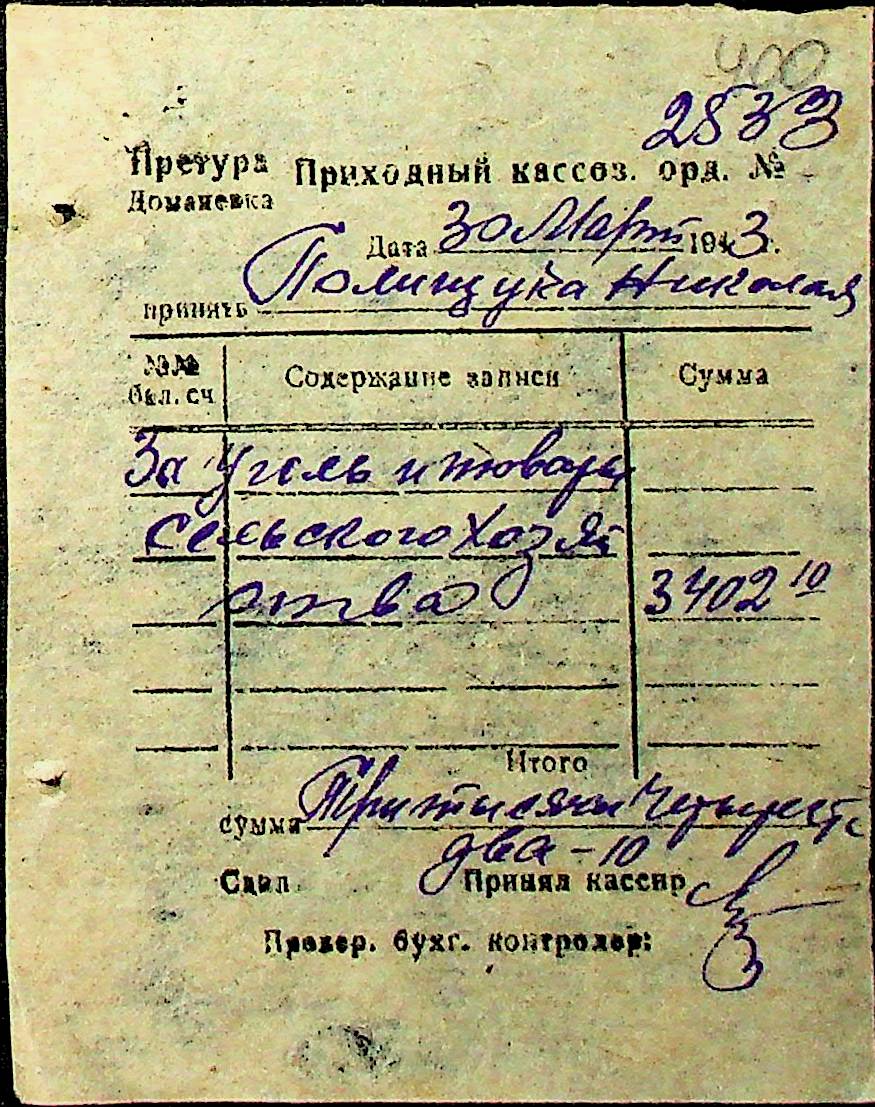 400
2533
Претура Приходный кассов. орд. №
Доманевка
Дата 30 Март 1943 г.
принять Полищука Николая
№№ бал. сч Содержание записи Сумма
За уголь и товары
сельского хозяй
ства 3402 10
Итого
сумма Три тысячи Четыреста
два - 10
Сдал Принял кассир
Провер. бухг. контролер: